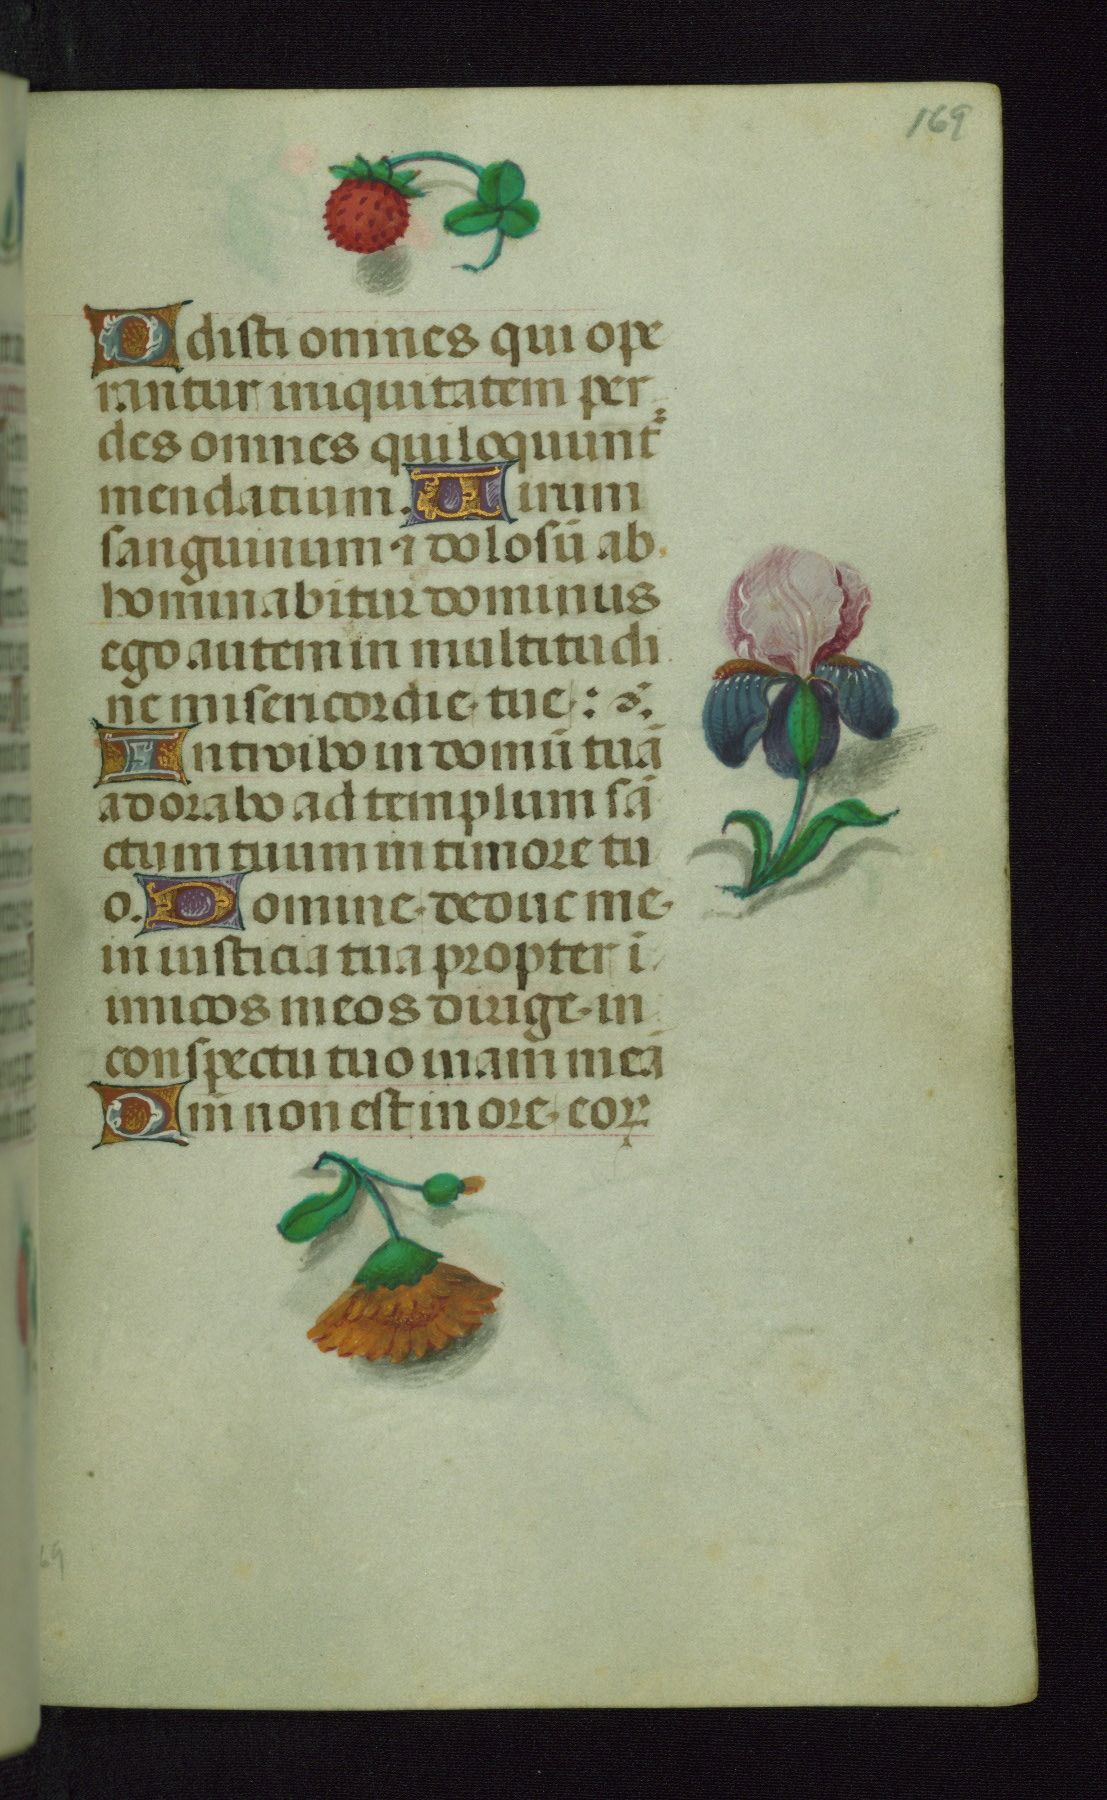 169
Odisti omnes qui ope
rantur iniquitatem per
des omnes qui loquunt᷑
mendatium. Uirum
sanguinum ⁊ dolosū ab
hominabitur dominus
ego autem in multitudi
ne misericordie tue :
Introibo in domū tuā
adorabo ad templum sā
ctum tuum in timore tu
o. Domine deduc me
in iusticia tua propter i
imicos meos dirige in
conspectu tuo uiam meā
Qm̄ non est in ore eoꝝ